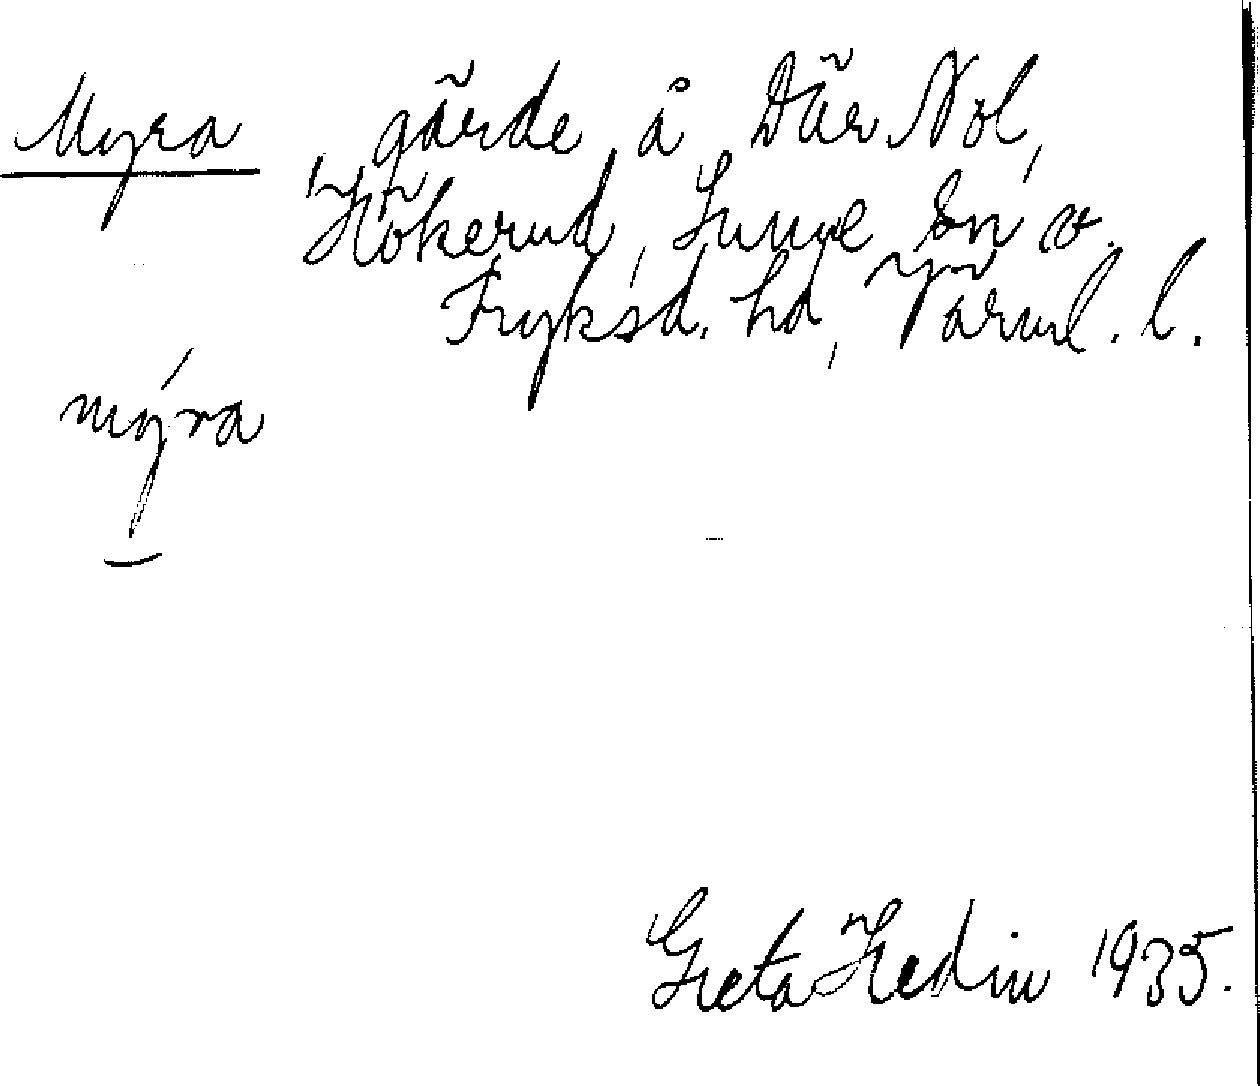 Myra, gärde å Där Nol,
Hökerud, Sunne sn o.
Fryksd. hd, Värml. l.
mýra
Greta Hedin 1935.